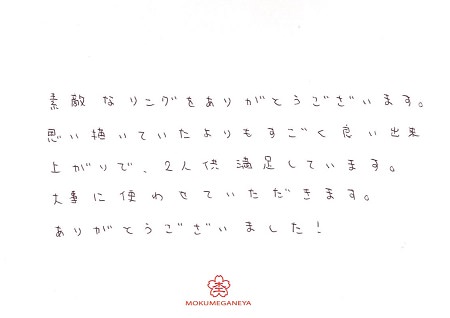 素敵なリングをありがとうございます。
思い描いていたよりもすごく良い出来
上がりで、2人供満足しています。
大事に使わせていただきます。
ありがとうございました!
MOKUMEGANEYA